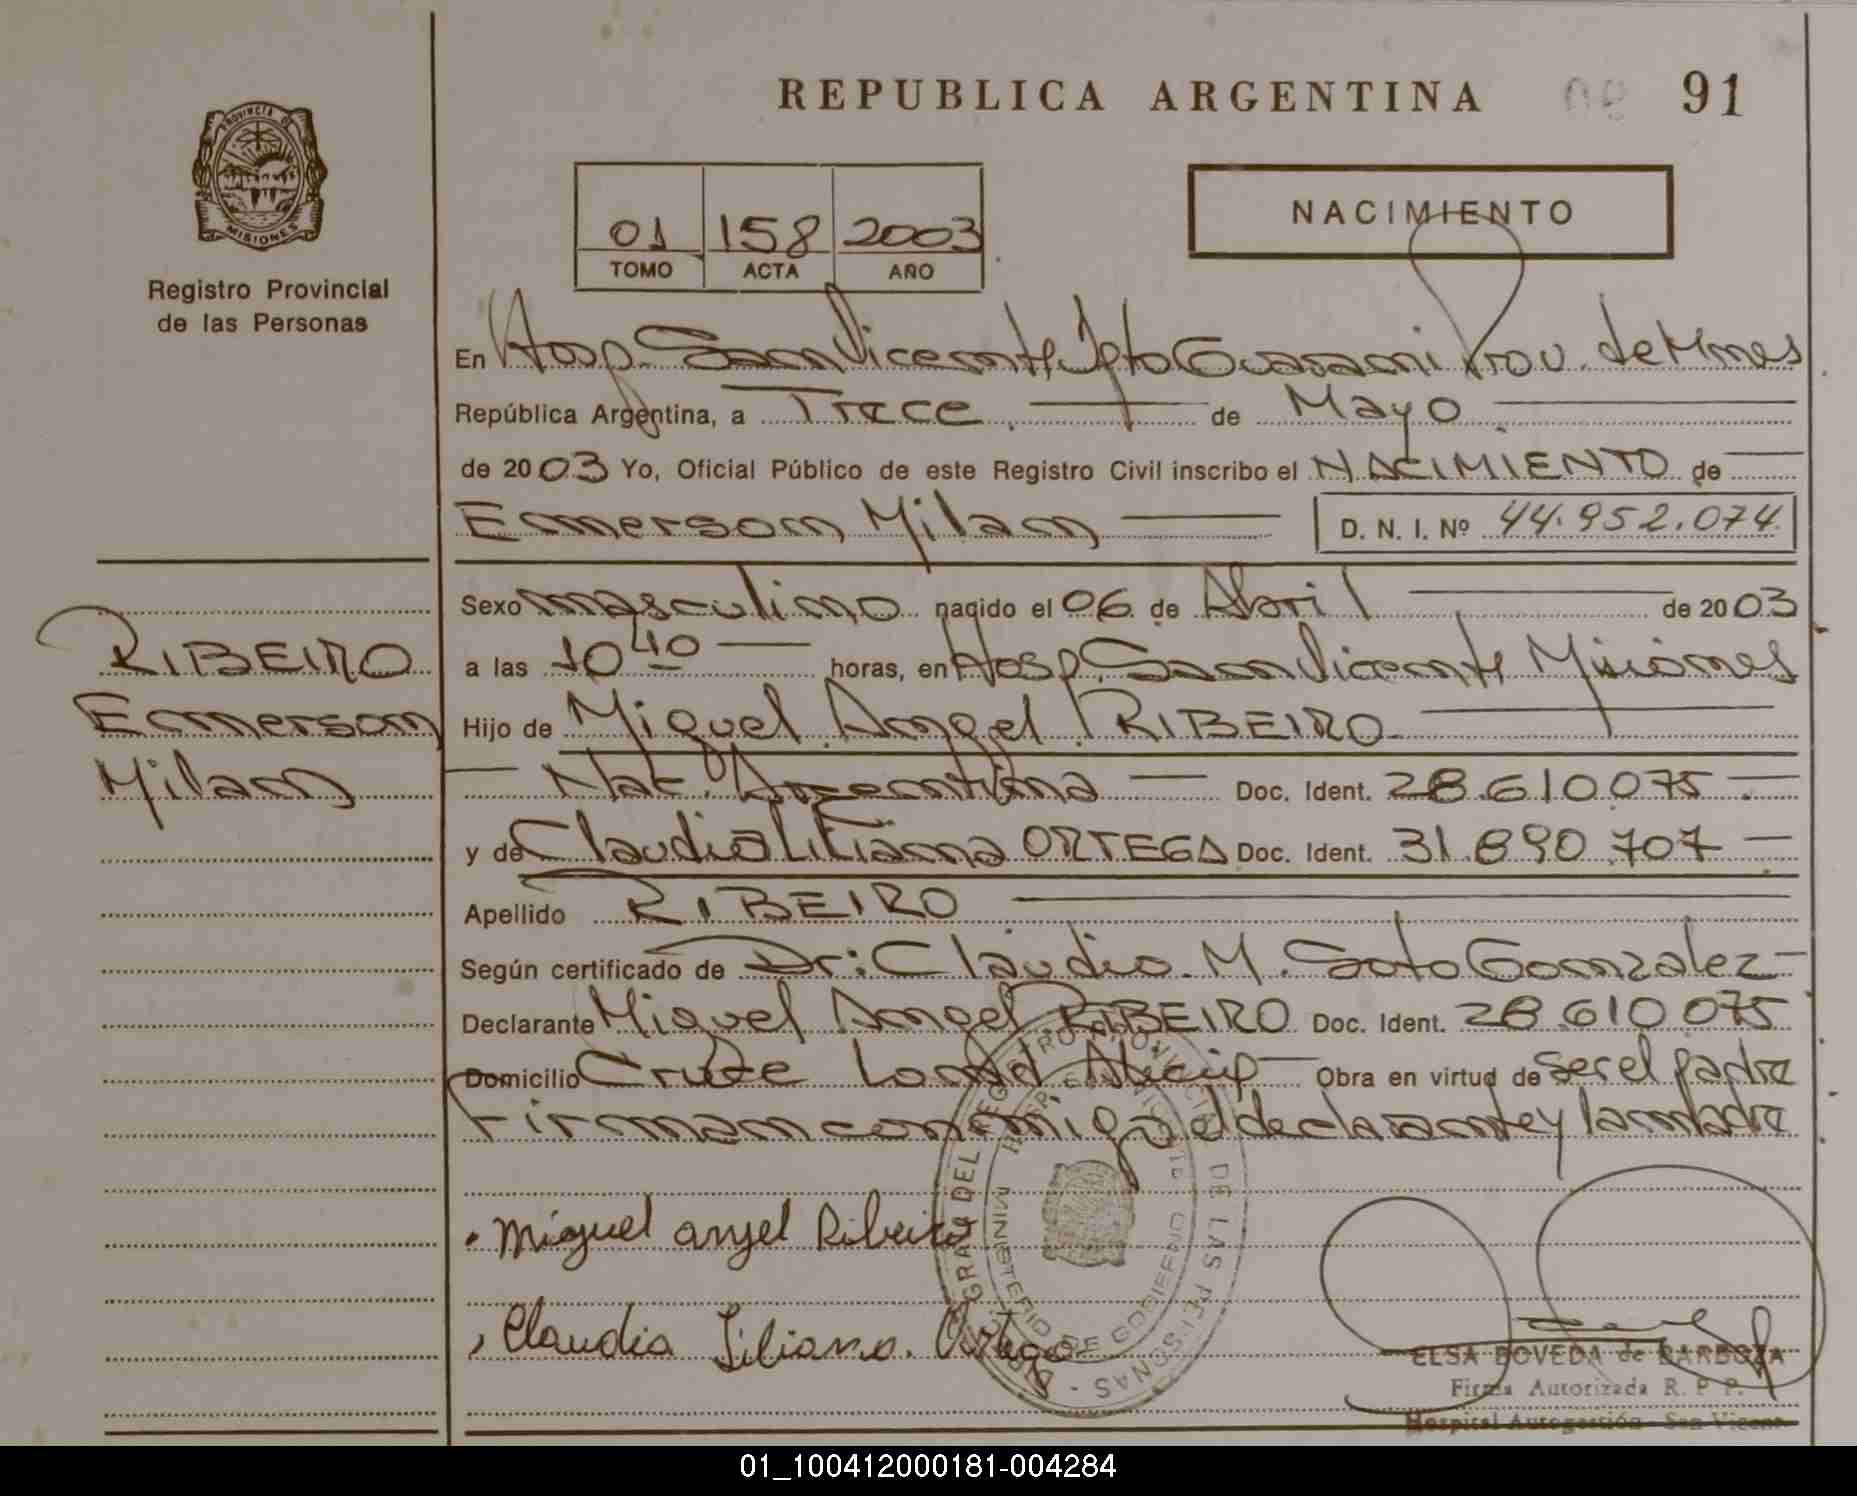 REPUBLICA ARGENTINA 91
PROVINCIA DE
MISIONES
Registro Provincial
de las Personas
01 158 2003
TOMO ACTA AÑO
NACIMIENTO
En Hosp. San Vicente Dpto Guarani Prov. de Mnes
República Argentina, a Trece de Mayo
de 2003 Yo, Oficial Público de este Registro Civil inscribo el NACIMIENTO de
Emerson Milan D. N. I. Nº 44.952.074
Sexo masculino nacido el 06 de Abril de 2003
a las 10 40 horas, en Hosp. San Vicente Misiones
Hijo de Miguel Angel RIBEIRO
Nac. Argentina Doc. Ident. 28.610.075
y de Claudia Liliana ORTEGA Doc. Ident. 31.890.707
Apellido RIBEIRO
Según certificado de Dr: Claudio M. Soto Gonzalez
Declarante Miguel Angel RIBEIRO Doc. Ident. 28.610.075
Domicilio Cruce Obra en virtud de ser el padre
Firman conmigo el declarante y la madre
RIBEIRO
Emerson
Milan
Miguel angel Ribeiro
Claudia Liliana Ortega
MINISTERIO DE GOBIERNO
DE LAS PERSONAS
ELSA BOVEDA de BARBOZA
Firma Autorizada R. P. P.
Hospital Autogestión San Vicente
01_100412000181-004284